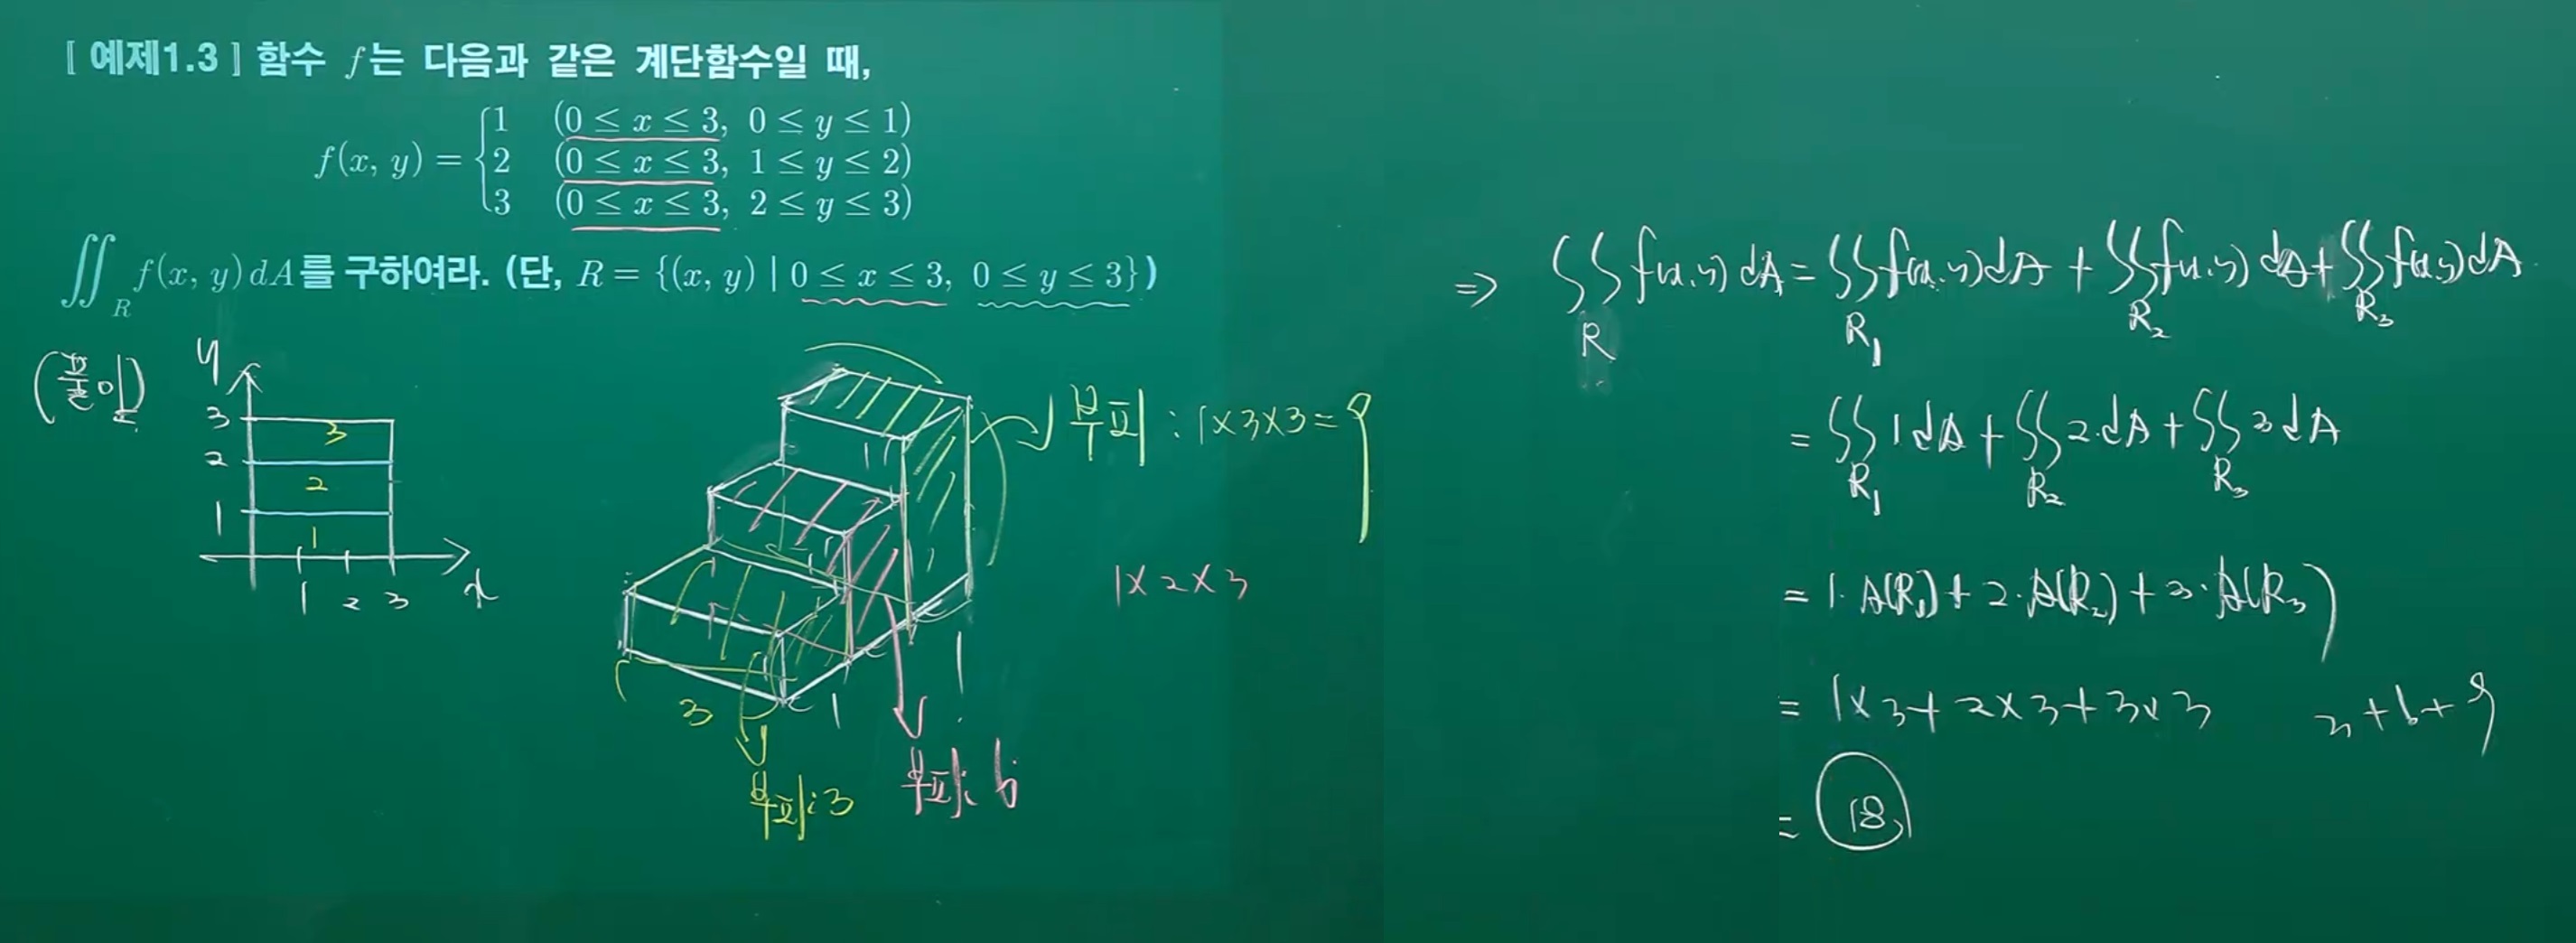 [ 예제1.3 ] 함수 f는 다음과 같은 계단함수일 때,
f(x, y) = { 1 (0 ≤ x ≤ 3, 0 ≤ y ≤ 1)
2 (0 ≤ x ≤ 3, 1 ≤ y ≤ 2)
3 (0 ≤ x ≤ 3, 2 ≤ y ≤ 3)
∬_R f(x, y) dA를 구하여라. (단, R = {(x, y) | 0 ≤ x ≤ 3, 0 ≤ y ≤ 3})
(풀이)
y
3
2
1
3
2
1
1 2 3 x
부피 : 1×3×3=9
1×2×3
3
1
1
부피: 3
부피: 6
⇒ ∬_R f(x,y) dA = ∬_R₁ f(x,y) dA + ∬_R₂ f(x,y) dA + ∬_R₃ f(x,y) dA
= ∬_R₁ 1 dA + ∬_R₂ 2·dA + ∬_R₃ 3 dA
= 1·A(R₁) + 2·A(R₂) + 3·A(R₃)
= 1×3 + 2×3 + 3×3 3+6+9
= 18